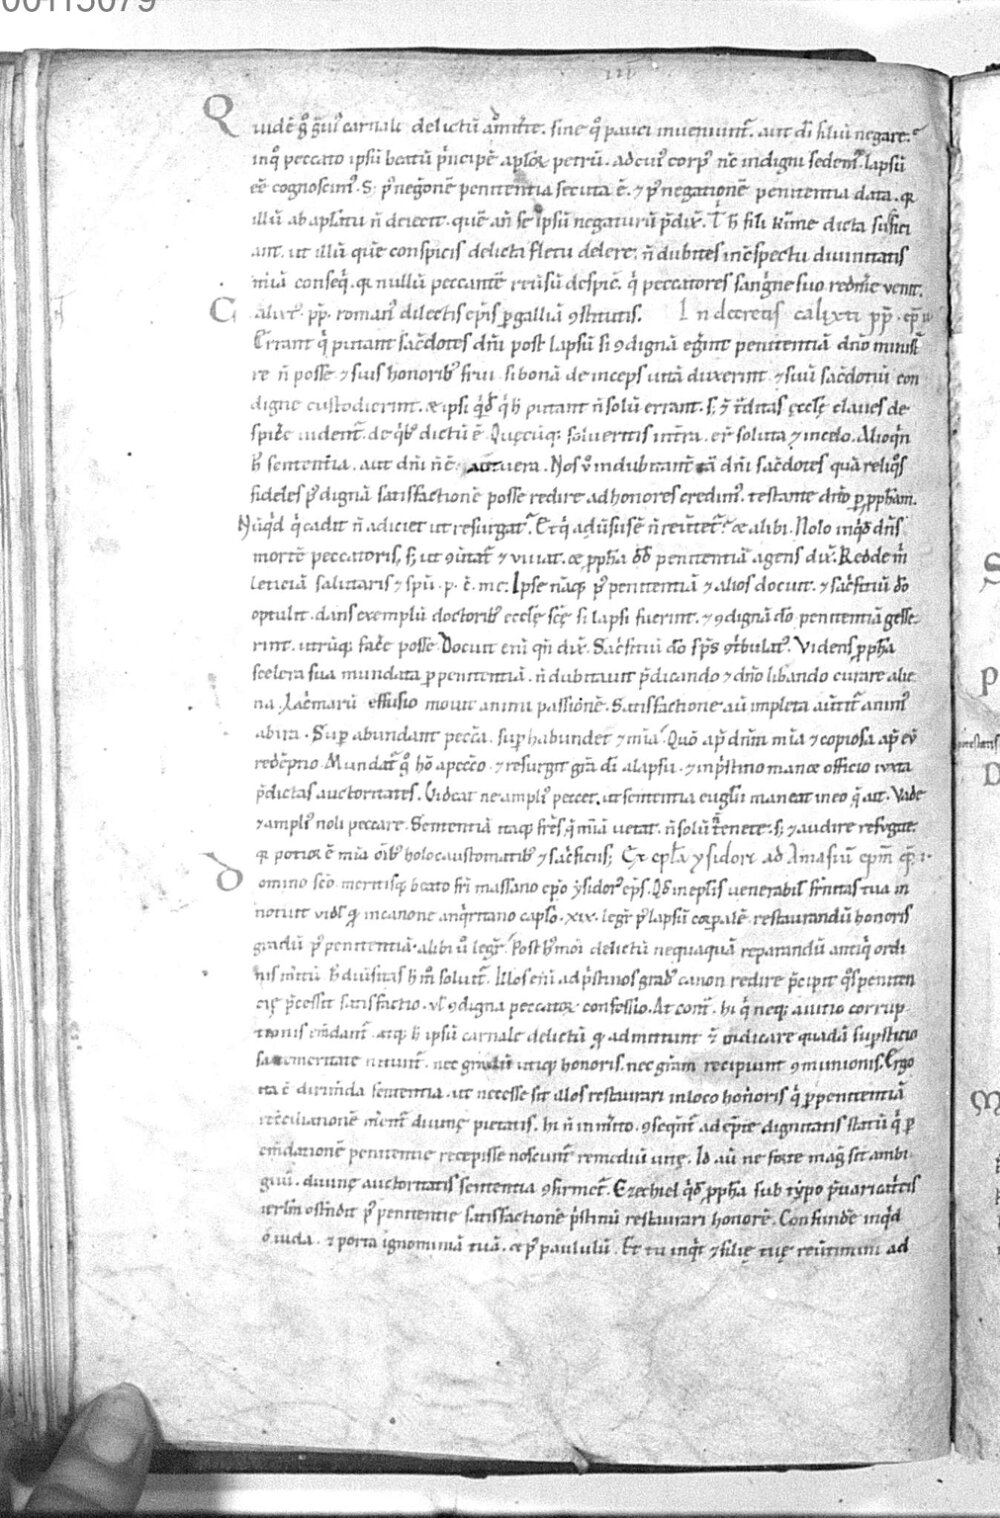 00115079
Q uidē g̊ g̃ui᷒ carnale delictū am̄itt̄e. sine q̊ pauci inueniunt̄. aut dī filiū negare.
inq̊ peccato ipsū beatū p̄ncipē aplōꝝ petrū. ad cui᷒ corp᷒ n̄c indigni sedem᷒. lapsū
eē cognoscim᷒. S; p᷒ negōnē penitentia secuta ē. ⁊ p᷒ negationē penitentia data. q̄
illū ab aplātu n̄ deiecit. quē an̄ se ipsū negaturū p̄dix̄. h̄ fili kīme dicta suffici
ant. ut illū quē conspicis delicta fletu delere; n̄ dubites in c̄spectu diuinitatis
m̄iā conseq̄. q̄ nullū peccantē reū suū despic̄. q̄ peccatores sang̃ne suo redim̄e venit.
C alixt᷒. pp̄. roman᷒ dilectis ep̄is p galliā ꝯstitutis. In decretis calixti pp̄. ep̄
Errant q̄ putant sac̄dotes dn̄i post lapsū si ꝯdignā eg̃int penitentiā dn̄o minist̄
re n̄ posse ⁊ suis honorib᷒ frui. si bonā deinceps uitā duxerint ⁊ suū sac̄dotiū con
digne custodierint. & ipsi q̄d̄ q̄ h̄ putant n̄ solū errant. s; ⁊ t̄ditas ęcclę claues de
spic̄e uident̄. de q̄b᷒ dictū ē. Quęcūq; solueritis in t̄ra. er̄ soluta ⁊ in celo. Alioq̄n
h̄ sententia. aut dn̄i n̄ ē. aut uera. Nos ů indubitant̄ tā dn̄i sac̄dotes quā reliq̊s
fideles p᷒ dignā satisfactionē posse redire ad honores credim᷒. testante dn̄o p pp̄ham.
Nūq̄d q̄ cadit n̄ adiciet ut resurgat. Et q̄ aūsus ē n̄ reūtet̄. & alibi. Nolo inq̄d dn̄s
mortē peccatoris, s; ut ꝯūtat̄ ⁊ viuat. & pp̄ha dd̄ penitentiā agens dix̄. Redde m̄
leticiā salutaris ⁊ spū. p. c̄. mc. Ipse nāq; p᷒ penitentiā ⁊ alios docuit. ⁊ sac̄fitiū dō
optulit. dans exemplū doctorib᷒ ecclę scę si lapsi fuerint. ⁊ ꝯdignā dō penitentiā gesse
rint. utrūq; fac̄e posse. Docuit eni qn̄ dix̄. Sac̄fitiū dō sp̄s ꝯt̄bulat᷒. Videns pp̄ha
scelera sua mundata p penitentiā. n̄ dubitauit p̄dicando ⁊ dn̄o libando curare alie
na. Lac̄marū effusio mouit animi passionē. Satisfactione aū impleta aūtit̄ anim᷒
ab ira. Supabundant pecc̄a. suphabundet ⁊ m̄ia. Quō ap᷒ dn̄m m̄ia ⁊ copiosa ap᷒ eū
redēptio. Mundat̄ g̊ hō a pecc̄o. ⁊ resurgit gr̄a dī a lapsu. ⁊ in p̄stino manet officio iuxta
p̄dictas auctoritates. Videat ne ampli᷒ peccet. ut sententia euglīi maneat in eo q̄ ait. Vade
⁊ ampli᷒ noli peccare. Sententiā itaq; fr̄s, q̄ m̄iā uetat. n̄ solū tenete. s; ⁊ audire refugite.
q̄ potior ē m̄ia om̄ib᷒ holocaustomatib᷒ ⁊ sac̄ficiis; Ex epl̄a ysidori ad Amasiū ep̄m. cp̄. i.
D omino scō meritisq; beato fr̄i massano ep̄o ysidor᷒ ep̄s. Qd̄ in epl̄is venerabil̄ fr̄nitas tua in
notuit vidl̄ q̄ in canone anq̄ritano capl̄o. xix. legit̄ p᷒ lapsū corpalē. restaurandū honoris
gradū p᷒ penitentiā. alibi ů legit̄. Post h᷒moi delictū nequaquā reparandū antiq̄ ordi
nis m̄itū. h̄ diūsitas h̄ m̄ soluit̄. Illos eni ad p̄stinos grad᷒ canon redire p̄cipit q̊s peniten
cię p̄cessit satisfactio. vl̄ ꝯdigna peccatoꝝ confessio. At cont̄. hi q̄ neq; a uitio corrup
tionis em̄dant̄. atq; h̄ ipsū carnale delictū q̊ admittunt ⁊ uindicare quadā supstitio
sa temeritate nitunt̄. nec gradū utiq; honoris. nec gr̄am recipiunt ꝯmunionis. Ergo
ita ē dirim̄da sententia. ut necesse sit illos restaurari in loco honoris q̄ p penitentiā
rec̄ciliationē m̄ent̄ diuinę pietatis. hi n̄ inm̄ito. ꝯseq̄nt̄ adep̄te dignitatis statū q̄ p
em̄dationē penitentie recepisse noscunt̄ remediū uitę. Id aū ne forte mag̃ sit ambi
guū. diuinę auctoritatis sententia ꝯfirmet̄. Ezechiel q̄d̄ pp̄ha sub typo p̄uaricat̄cis
ierl̄m ostn̄dit p᷒ penitentie satisfactionē p̄stinū restaurari honorē. Confundere inq̄d
o iuda. ⁊ porta ignominiā tuā. & p᷒ paululū. Et tu inq̄t ⁊ filię tuę reūtimini ad